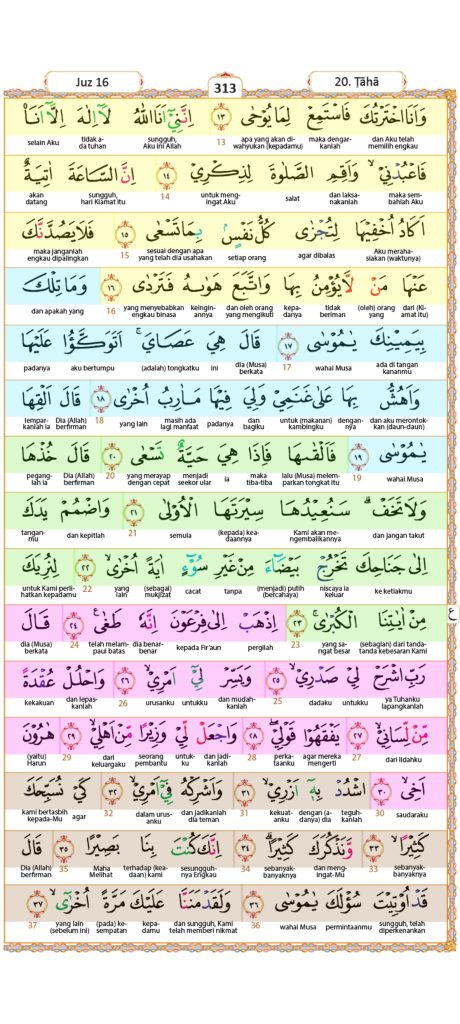 Juz 16
313
20. Ṭāhā
وَاَنَا اخْتَرْتُكَ فَاسْتَمِعْ لِمَا يُوْحٰى ١٣ اِنَّنِيْٓ اَنَا اللّٰهُ لَآ اِلٰهَ اِلَّآ اَنَا۠
dan Aku telah memilih engkau maka dengarkanlah apa yang akan diwahyukan (kepadamu) 13 sungguh, Aku ini Allah tidak ada tuhan selain Aku
فَاعْبُدْنِيْۙ وَاَقِمِ الصَّلٰوةَ لِذِكْرِيْ ١٤ اِنَّ السَّاعَةَ اٰتِيَةٌ
maka sembahlah Aku dan laksanakanlah salat untuk mengingat Aku 14 sungguh, hari Kiamat itu akan datang
اَكَادُ اُخْفِيْهَا لِتُجْزٰى كُلُّ نَفْسٍۢ بِمَا تَسْعٰى ١٥ فَلَا يَصُدَّنَّكَ
Aku merahasiakan (waktunya) agar dibalas setiap orang sesuai dengan apa yang telah dia usahakan 15 maka janganlah engkau dipalingkan
عَنْهَا مَنْ لَّا يُؤْمِنُ بِهَا وَاتَّبَعَ هَوٰىهُ فَتَرْدٰى ١٦ وَمَا تِلْكَ
dari (Kiamat itu) (oleh) orang yang tidak beriman kepadanya dan oleh orang yang mengikuti keinginannya yang menyebabkan engkau binasa 16 dan apakah yang
بِيَمِيْنِكَ يٰمُوْسٰى ١٧ قَالَ هِيَ عَصَايَۚ اَتَوَكَّؤُا عَلَيْهَا
ada di tangan kananmu wahai Musa 17 dia (Musa) berkata ini (adalah) tongkatku aku bertumpu padanya
وَاَهُشُّ بِهَا عَلٰى غَنَمِيْ وَلِيَ فِيْهَا مَاٰرِبُ اُخْرٰى ١٨ قَالَ اَلْقِهَا
dan aku merontokkan (daun-daun) dengannya untuk (makanan) kambingku dan bagiku padanya masih ada lagi manfaat yang lain 18 Dia (Allah) berfirman lemparkanlah ia
يٰمُوْسٰى ١٩ فَاَلْقٰىهَا فَاِذَا هِيَ حَيَّةٌ تَسْعٰى ٢٠ قَالَ خُذْهَا
wahai Musa 19 lalu (Musa) melemparkan tongkat itu maka tiba-tiba ia menjadi seekor ular yang merayap dengan cepat 20 Dia (Allah) berfirman peganglah ia
وَلَا تَخَفْۗ سَنُعِيْدُهَا سِيْرَتَهَا الْاُوْلٰى ٢١ وَاضْمُمْ يَدَكَ
dan jangan takut Kami akan mengembalikannya (kepada) keadaannya semula 21 dan kepitlah tanganmu
اِلٰى جَنَاحِكَ تَخْرُجْ بَيْضَاۤءَ مِنْ غَيْرِ سُوْۤءٍ اٰيَةً اُخْرٰىۙ ٢٢ لِنُرِيَكَ
ke ketiakmu niscaya ia keluar (menjadi) putih (bercahaya) tanpa cacat (sebagai) mukjizat yang lain 22 untuk Kami perlihatkan kepadamu
مِنْ اٰيٰتِنَا الْكُبْرٰىۚ ٢٣ اِذْهَبْ اِلٰى فِرْعَوْنَ اِنَّهٗ طَغٰىۚ ٢٤ قَالَ
(sebagian) dari tanda-tanda kebesaran Kami yang sangat besar 23 pergilah kepada Fir'aun dia benar-benar telah melampaui batas 24 dia (Musa) berkata
رَبِّ اشْرَحْ لِيْ صَدْرِيْۙ ٢٥ وَيَسِّرْ لِيْٓ اَمْرِيْۙ ٢٦ وَاحْلُلْ عُقْدَةً
ya Tuhanku lapangkanlah untukku dadaku 25 dan mudahkanlah untukku urusanku 26 dan lepaskanlah kekakuan
مِّنْ لِّسَانِيْۙ ٢٧ يَفْقَهُوْا قَوْلِيْۖ ٢٨ وَاجْعَلْ لِّيْ وَزِيْرًا مِّنْ اَهْلِيْۙ ٢٩ هٰرُوْنَ
dari lidahku 27 agar mereka mengerti perkataanku 28 dan jadikanlah untukku seorang pembantu dari keluargaku 29 (yaitu) Harun
اَخِىۙ ٣٠ اشْدُدْ بِهٖٓ اَزْرِيْۙ ٣١ وَاَشْرِكْهُ فِيْٓ اَمْرِيْۙ ٣٢ كَيْ نُسَبِّحَكَ
saudaraku 30 teguhkanlah dengan (adanya) dia kekuatanku 31 dan jadikanlah dia teman dalam urusanku 32 agar kami bertasbih kepada-Mu
كَثِيْرًاۙ ٣٣ وَّنَذْكُرَكَ كَثِيْرًاۗ ٣٤ اِنَّكَ كُنْتَ بِنَا بَصِيْرًا ٣٥ قَالَ
sebanyak-banyaknya 33 dan mengingat-Mu sebanyak-banyaknya 34 sesungguhnya Engkau terhadap (keadaan) kami Maha Melihat 35 Dia (Allah) berfirman
قَدْ اُوْتِيْتَ سُؤْلَكَ يٰمُوْسٰى ٣٦ وَلَقَدْ مَنَنَّا عَلَيْكَ مَرَّةً اُخْرٰىٓ ٣٧
sungguh, telah diperkenankan permintaanmu wahai Musa 36 dan sungguh, Kami telah memberi nikmat kepadamu (pada) kesempatan yang lain (sebelum ini) 37
ع